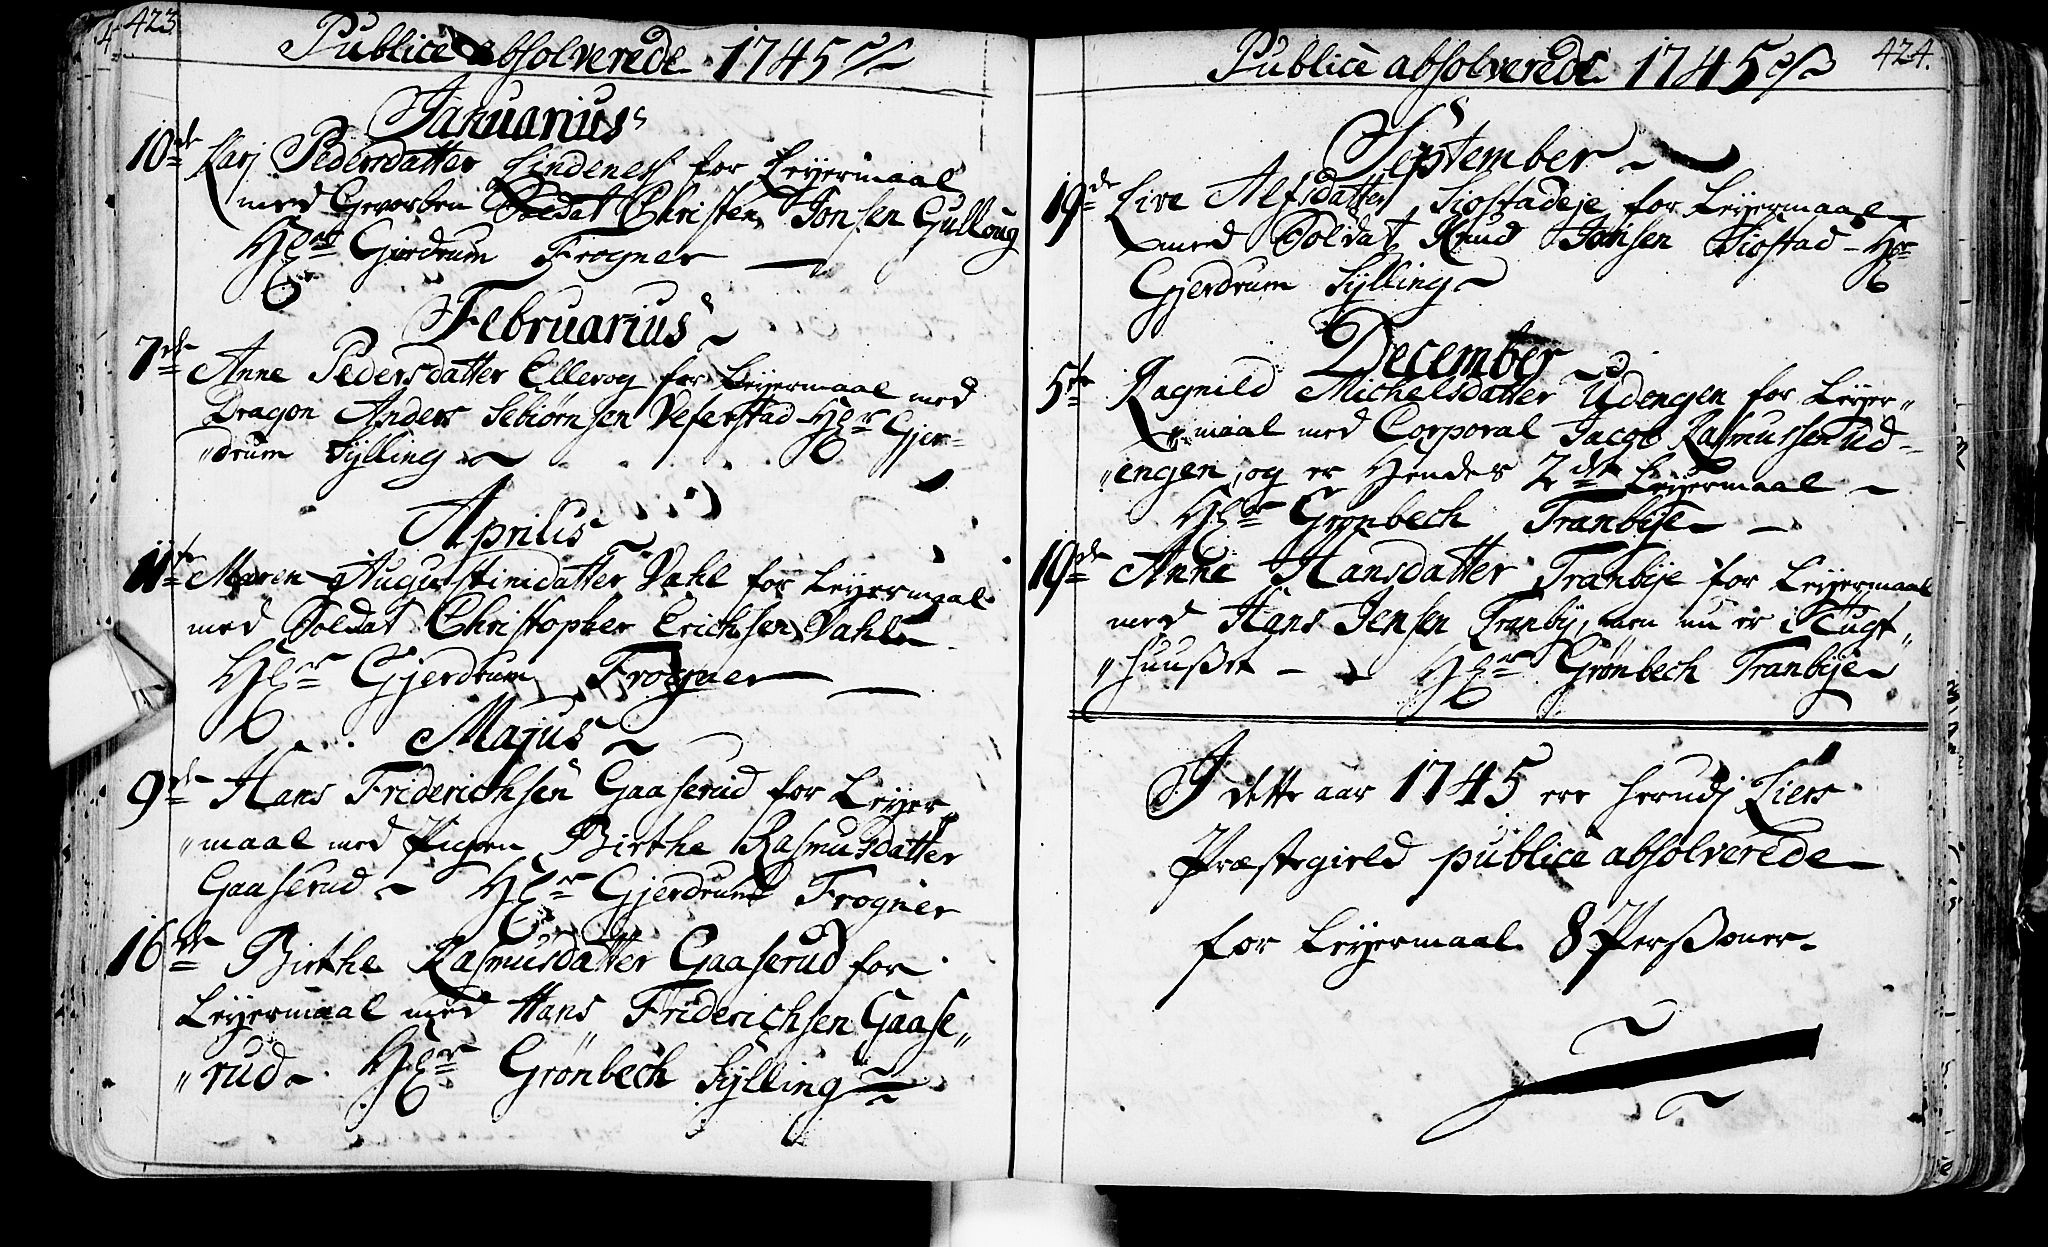 423
Publice absolverede 1745
Januarius
10de Kari Pedersdatter Lindenes for Leyermaal
med Gevorben Soldat Christen Jonsen Gulloug
Hr Gierdrum Frogner
Februarius
7de Anne Pedersdatter Ellevog for Leyermaal med
Dragon Anders Sebiørnsen Veferstad Hr Gjer-
"drum Sylling
Aprilis
11te Maren Augustinidatter Dahl for Leyermaal
med Soldat Christopher Erichsen Dahl
Hr Gjerdrum Frogner
Majus
9de Hans Friderichsen Gaaserud for Leyer"
"maal med Pigen Birthe Rasmusdatter
Gaaserud Hr Gjerdrum Frogner
16de Birthe Rasmusdatter Gaaserud for
Leyermaal med Hans Friderichsen Gaase"
"rud Hr Grønbech Sylling
424.
Publice absolverede 1745
September
19de Live Alfsdatter Siostadeje for Leyermaal
med Soldat Knud Jonsen Siostad Hr
Gjerdrum Sylling
December
5te Ragnild Michelsdatter Udengen for Leyer"
"maal med Corporal Jacob Rasmussen Ud-
"engen, og er Hendes 2det Leyermaal
Hr Grønbech Tranbye
19de Anne Hansdatter Tranbye for Leyermaal
med Hans Jensen Tranby, som nu er i Tugt"
"huuset Hr Grønbech Tranbye
I dette aar 1745 ere herudj Liers
Præstegield publice absolverede
for Leyermaal 8 Personer